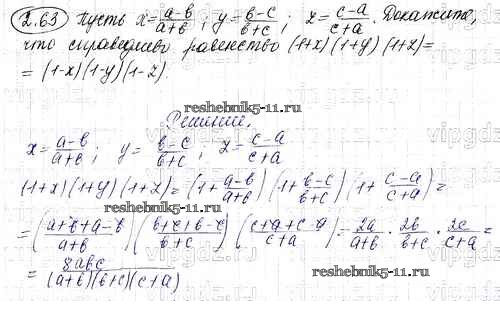 2.63 Пусть x = (a-в)/(a+в); y = (в-c)/(в+c); z = (c-a)/(c+a). Докажите,
что справедливо равенство (1+x)(1+y)(1+z)=
=(1-x)(1-y)(1-z).
reshebnik5-11.ru
Решение.
x = (a-в)/(a+в); y = (в-c)/(в+c); z = (c-a)/(c+a)
(1+x)(1+y)(1+z) = (1+(a-в)/(a+в)) (1+(в-c)/(в+c)) (1+(c-a)/(c+a)) =
reshebnik5-11.ru
= ((a+в+a-в)/(a+в)) ((в+c+в-c)/(в+c)) ((c+a+c-a)/(c+a)) = 2a/(a+в) · 2в/(в+c) · 2c/(c+a) =
= 8aвc/((a+в)(в+c)(c+a))
reshebnik5-11.ru